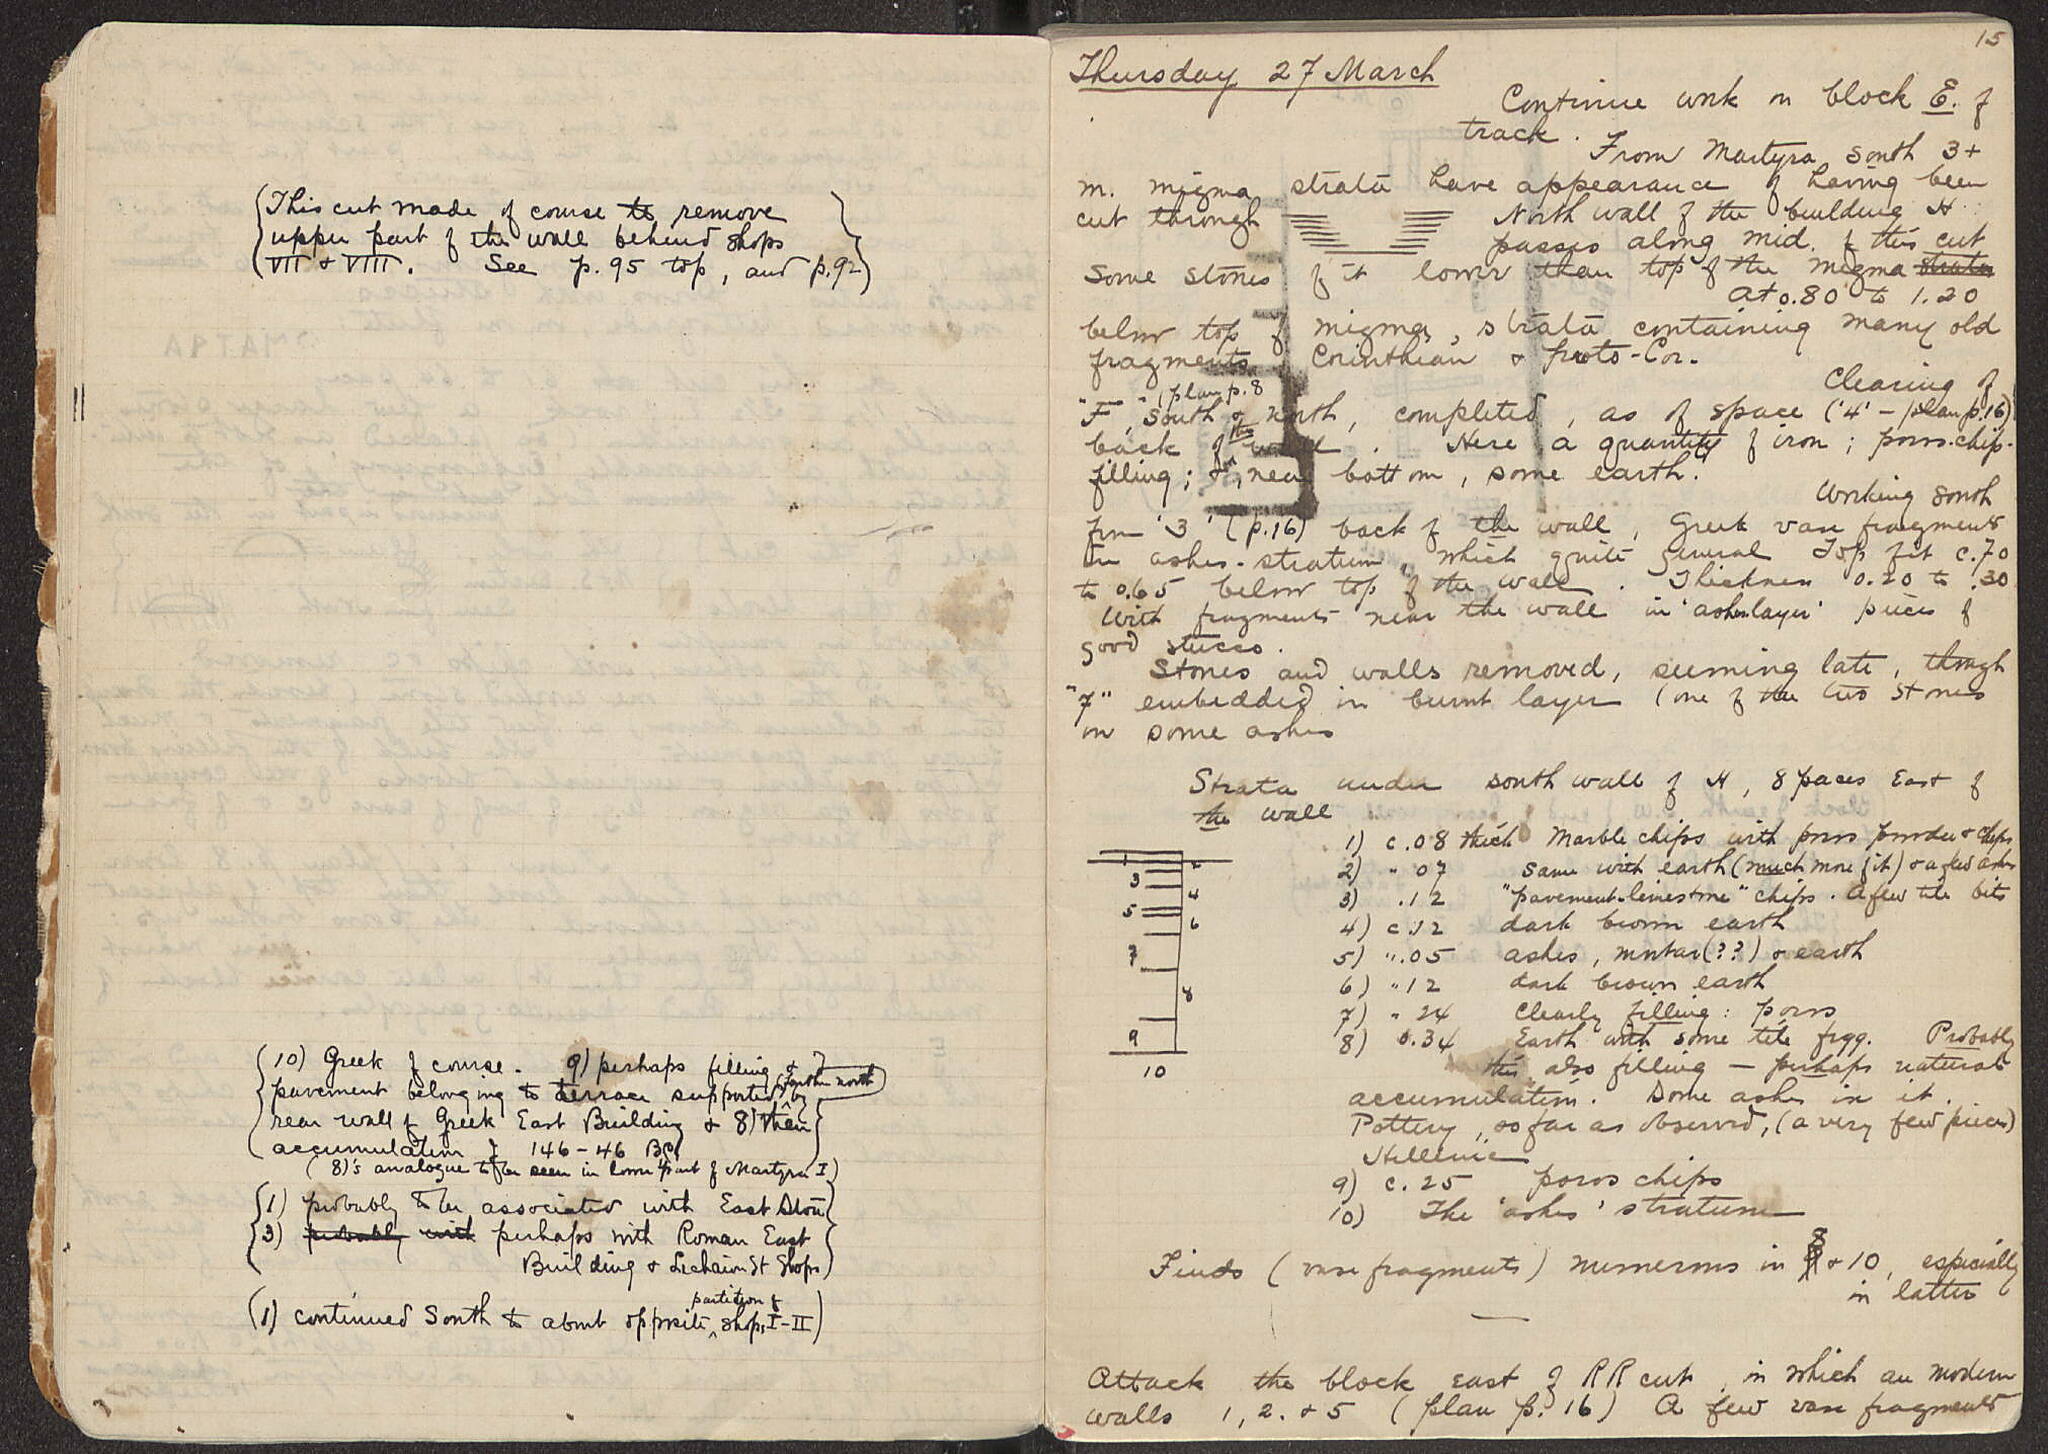 (This cut made of course to remove
upper part of the wall behind shops
VII & VIII. See p. 95 top, and p. 92)
(10) Greek of course. 9) perhaps filling &
pavement belonging to terrace supported (further north) by
rear wall of Greek East Building & 8) then
accumulation of 146-46 BC)
(8)'s analogue to be seen in lower part of Martyra I)
(1) probably to be associated with East Stoa
3) probably with perhaps with Roman East
Building & Lechaion St Shops)
(1) continued South to about opposite partition of shops I-II)
15
Thursday 27 March
Continue work on block E. of
track.
From Martyra south 3+
m. migma strata have appearance of having been
cut through
North wall of the building H
passes along mid. of this cut
Some stones of it lower than top of the migma strata
At 0.80 to 1.20
below top of migma, strata containing many old
fragments Corinthian & proto-Cor.
Clearing of
"F", (plan p. 8 South & north, completed, as of space ('4' - plan p. 16)
back of the wall. Here a quantity of iron; poros-chip-
filling; & in, near bottom, some earth.
Working south
from '3' (p. 16) back of the wall, Greek vase fragments
in ashes-stratum, which quite general Top fr c. 70
to 0.65 below top of the wall. Thickness 0.20 to .30
With fragments near the wall in 'ashes layer' pieces of
good stucco.
Stones and walls removed, seeming late, though
"7" embedded in burnt layer (one of the two stones
on some ashes
Strata under south wall of H, 8 paces East of
the wall
1 2
3
4
5
6
7
8
9
10
1) c .08 thick Marble chips with poros powder & chips
2) " 07 same with earth (much more of it) & a few ashes
3) .12 "pavement-limestone" chips. A few tile bits
4) c .12 dark brown earth
5) " .05 ashes, mortar (??) & earth
6) " 12 dark brown earth
7) " 24 Clearly filling: poros
8) 0.34 Earth with some tile frgg. Probably
this also filling - perhaps natural
accumulation. Some ashes in it.
Pottery, so far as observed, (a very few pieces)
Hellenic
9) c. 25 poros chips
10) The 'ashes' stratum
Finds (vase fragments) numerous in 8 & 10, especially
in latter
Attack the block east of RR cut, in which are modern
walls 1, 2. & 5 (plan p. 16) A few vase fragments